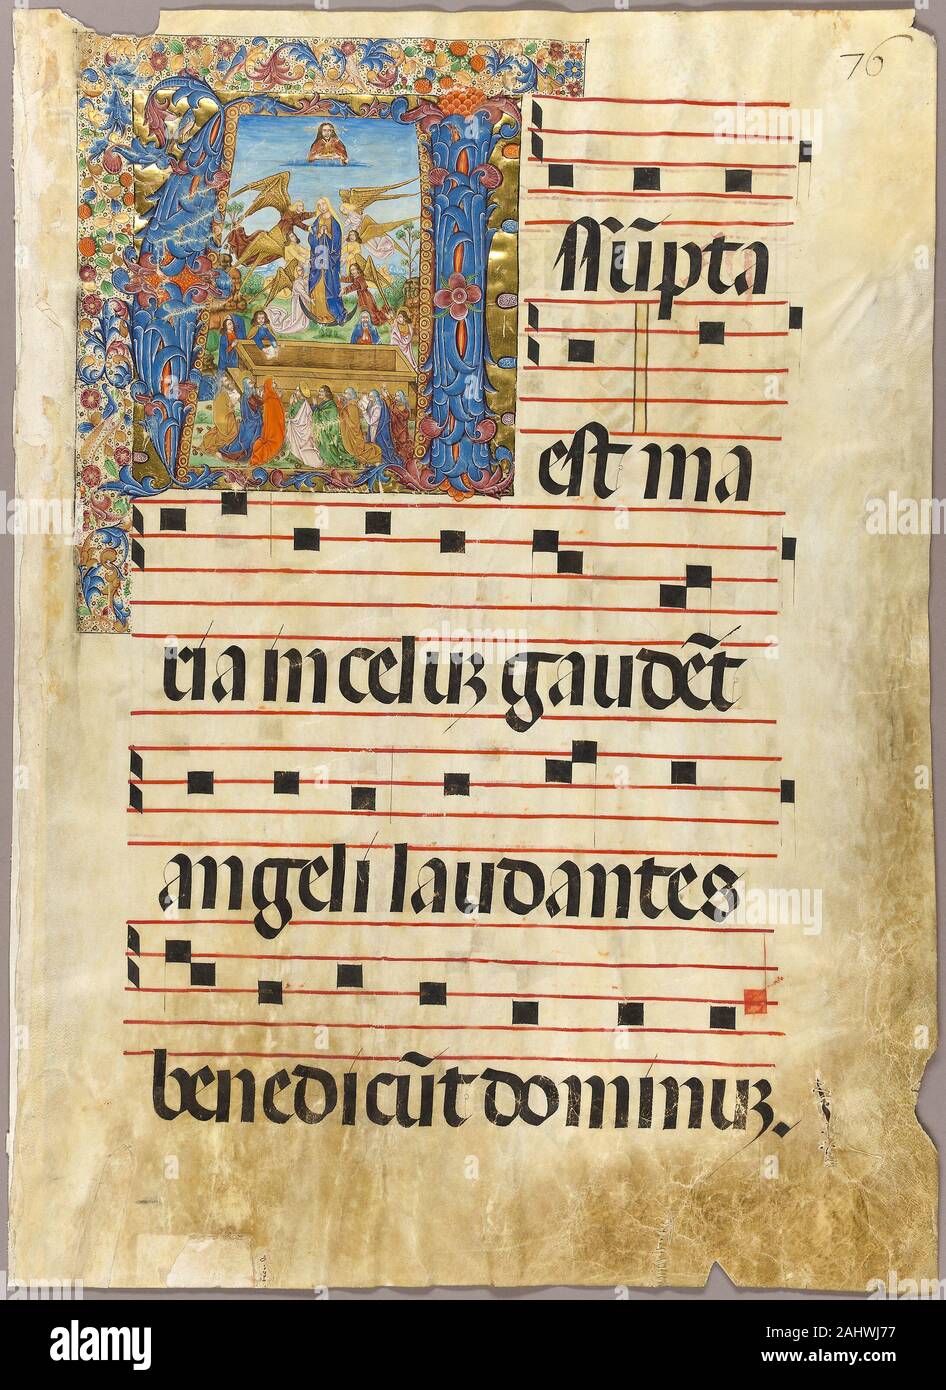 76
Assūpta
est ma
ria in celuz gaudēt
angeli laudantes
benedicūt dominuz.
alamy
Image ID: 2AHWJ77
www.alamy.com